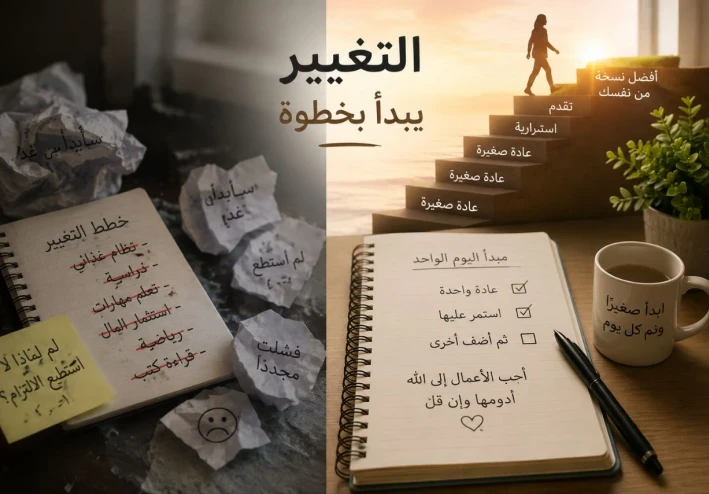 التغيير
يبدأ بخطوة
سيأبدأ من غد
سيأبدأن
غدًا
لم أستطع
فشلت
مجددًا
خطط التغيير
- نظام غذائي
- دراسية
- تعلم مهارات
- استثمار المال
- رياضية
- قراءة كتب
لم لماذا لا
استطيع الالتزام؟
أفضل نسخة
من نفسك
تقدم
استرارية
عادة صغيرة
عادة صغيرة
عادة صغيرة
مبدأ اليوم الواحد
عادة واحدة
استمر عليها
ثم أضف أخرى
أحب الأعمال إلى الله
أدومها وإن قل
ابدأ صغيرًا
ونم كل يوم